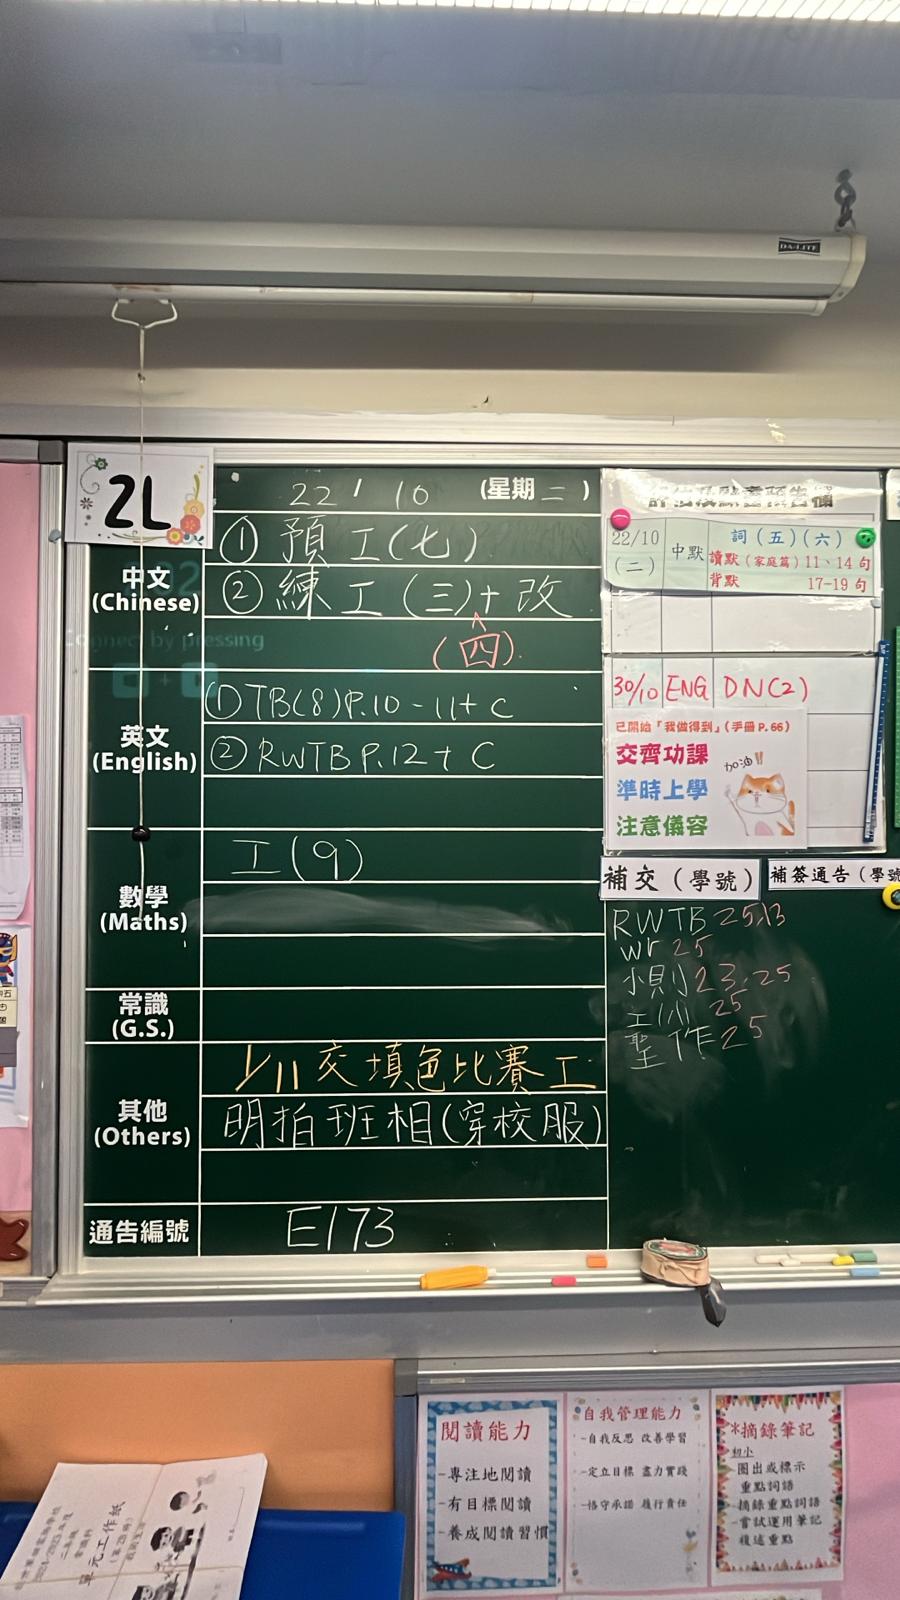 DA-LITE
2L
22 / 10 (星期二)
① 預工(七)
中文
(Chinese)
② 練工(三)+改
(四)
Connect by pressing
英文
(English)
① TB(8)P.10-11+C
② RWTB P.12+C
數學
(Maths)
工(9)
常識
(G.S.)
其他
(Others)
1/11交填色比賽工
明拍班相(穿校服)
通告編號
E173
22/10
(二)
中默
詞(五)(六)
讀默(家庭篇)11、14句
背默 17-19句
30/10 ENG DN(2)
已開始「我做得到」(手冊P.66)
交齊功課
準時上學
注意儀容
加油!!
補交(學號)
補簽通告(學號
RWTB 25,13
wr 25
小則 23,25
25
聖作25
閱讀能力
-專注地閱讀
-有目標閱讀
-養成閱讀習慣
自我管理能力
-自我反思 改善學習
-定立目標 盡力實踐
-恪守承諾 履行責任
*摘錄筆記
初小
-圈出或標示
重點詞語
-摘錄重點詞語
-嘗試運用筆記
複述重點
單元工作紙